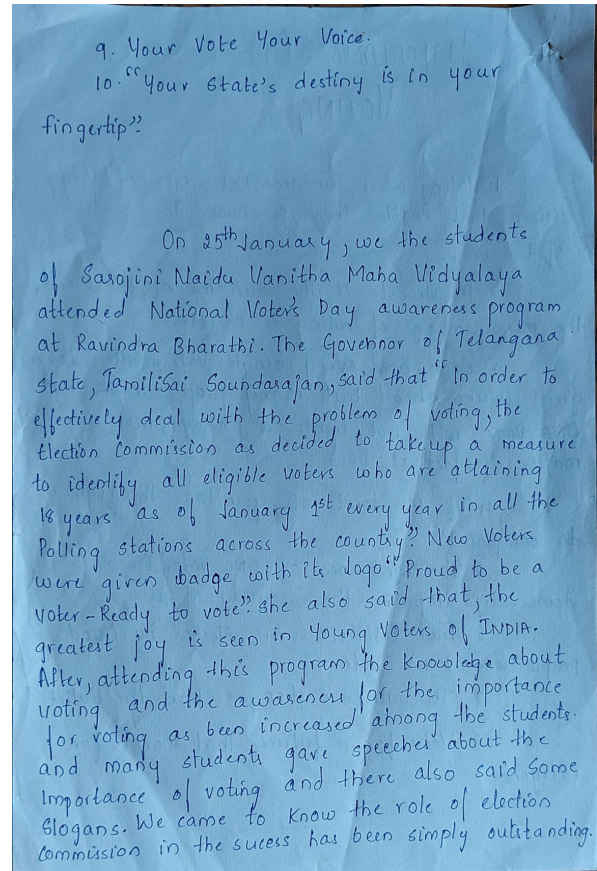 9. Your Vote Your Voice.
10. "Your State's destiny is in your
fingertip".
On 25th January, we the students
of Sarojini Naidu Vanitha Maha Vidyalaya
attended National Voter's Day awareness program
at Ravindra Bharathi. The Governor of Telangana
state, TamiliSai Soundarajan, said that "In order to
effectively deal with the problem of voting, the
Election Commission as decided to takeup a measure
to identify all eligible voters who are attaining
18 years as of January 1st every year in all the
Polling stations across the country". New Voters
were given badge with its logo "Proud to be a
voter - Ready to vote". She also said that, the
greatest joy is seen in Young Voters of INDIA.
After, attending this program the Knowledge about
voting and the awareness for the importance
for voting as been increased among the students.
and many students gave speeches about the
Importance of voting and there also said Some
Slogans. We came to Know the role of election
Commission in the sucess has been simply outstanding.